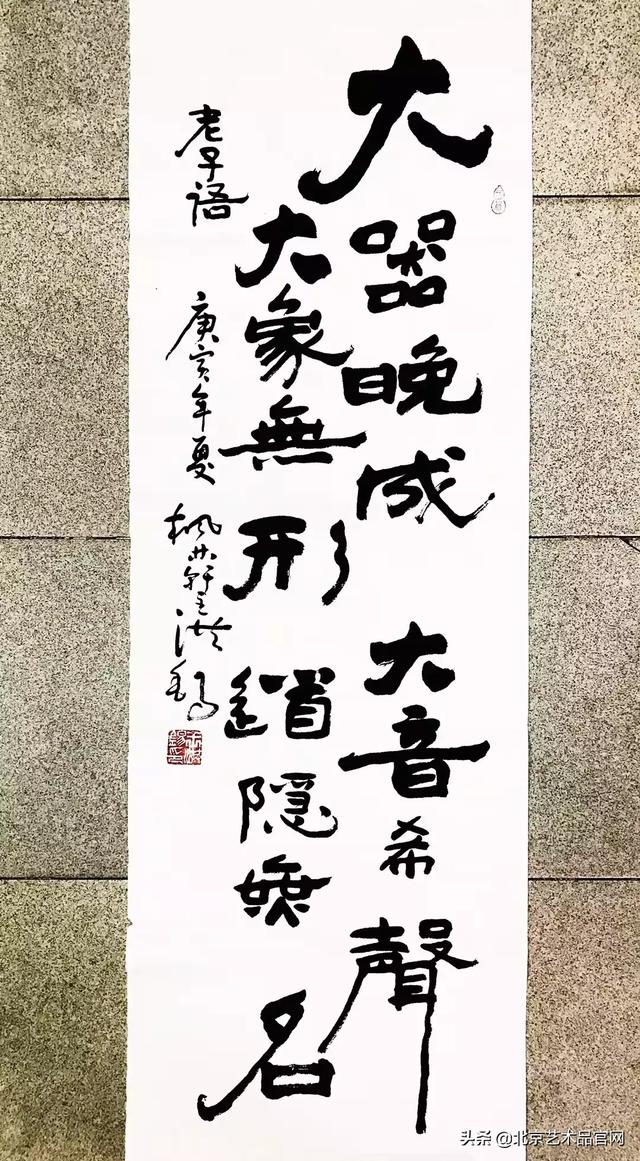 大器晚成大音希聲
大象無形道隱無名
老子語
庚寅年夏
頭条@北京艺术品官网